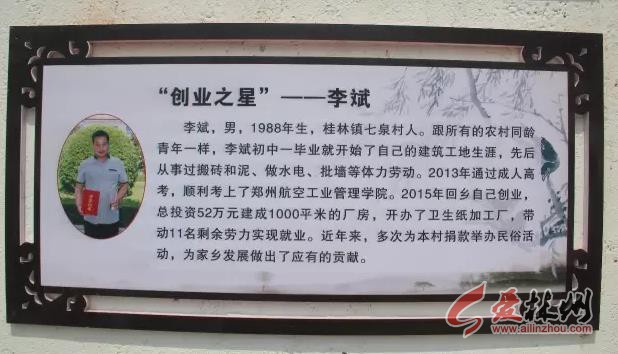 “创业之星”——李斌
李斌，男，1988年生，桂林镇七泉村人。跟所有的农村同龄
青年一样，李斌初中一毕业就开始了自己的建筑工地生涯，先后
从事过搬砖和泥、做水电、批墙等体力劳动。2013年通过成人高
考，顺利考上了郑州航空工业管理学院。2015年回乡自己创业，
总投资52万元建成1000平米的厂房，开办了卫生纸加工厂，带
动11名剩余劳力实现就业。近年来，多次为本村捐款举办民俗活
动，为家乡发展做出了应有的贡献。
爱林州
www.ailinzhou.com